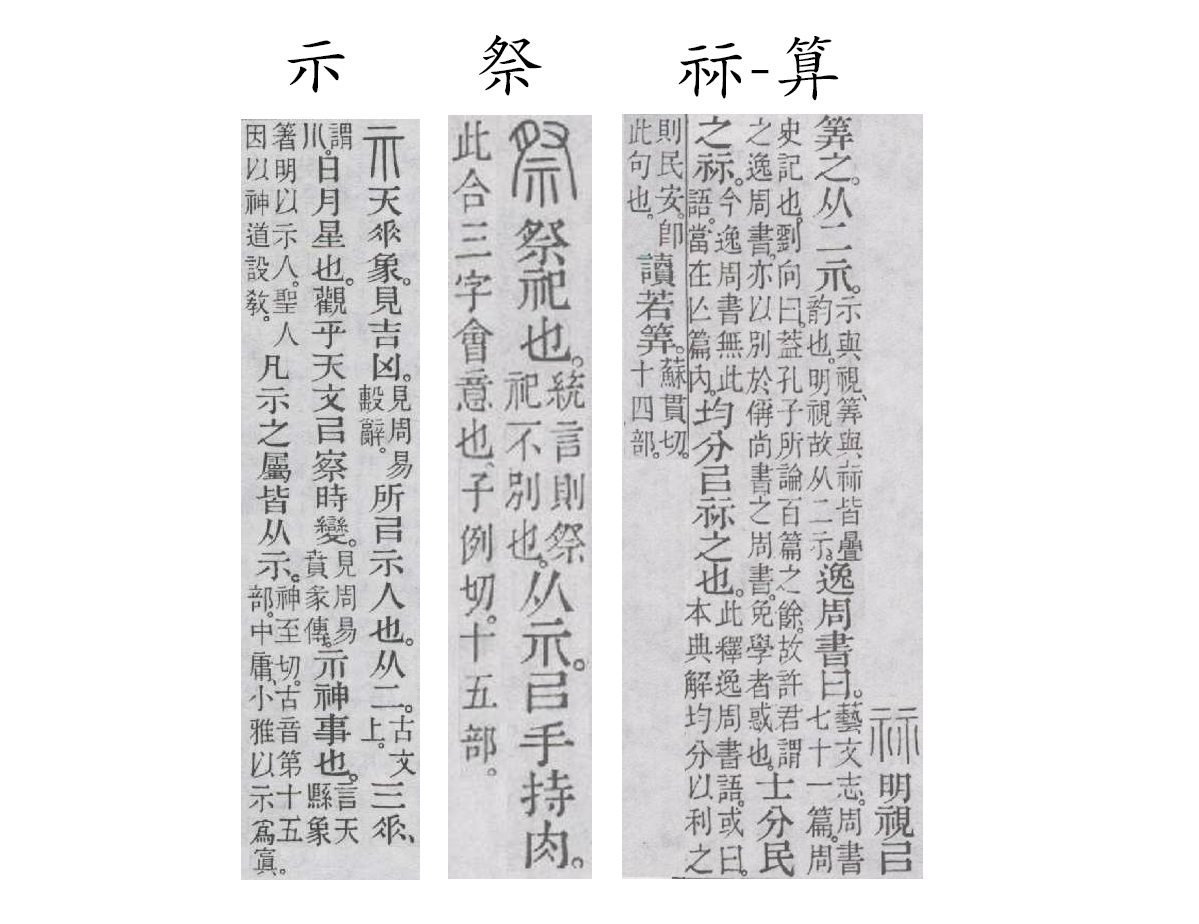 示
祭
祘-算
示天𠂹象。見吉凶。見周易𣪠辭。所㠯示人也。从二。古文上。三𠂹、
謂川。日月星也。觀乎天文㠯察時變。見周易賁彖傳。示神事也。言天縣象
箸明以示人。聖人因以神道設教。凡示之屬皆从示。神至切。古音第十五部。中庸、小雅以示爲寘。
祭祭祀也。統言則祭祀不別也。从示。㠯手持肉。
此合三字會意也、子例切。十五部。
祘明視㠯
筭之。从二示。示與視、筭與祘皆疊韵也。明視故从二示。逸周書曰。藝文志。周書七十一篇。周
史記也。劉向曰。葢孔子所論百篇之餘。故許君謂之逸周書。亦以別於偁尚書之周書。免學者惑也。士分民
之祘。今逸周書無此語。當在亾篇內。均分㠯祘之也。此釋逸周書語。或曰。本典解均分以利之
則民安。卽此句也。讀若筭。蘇貫切。十四部。